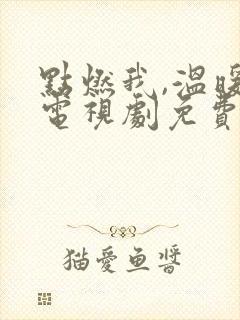 點燃我,溫暖
電視劇免費
猫愛魚醬